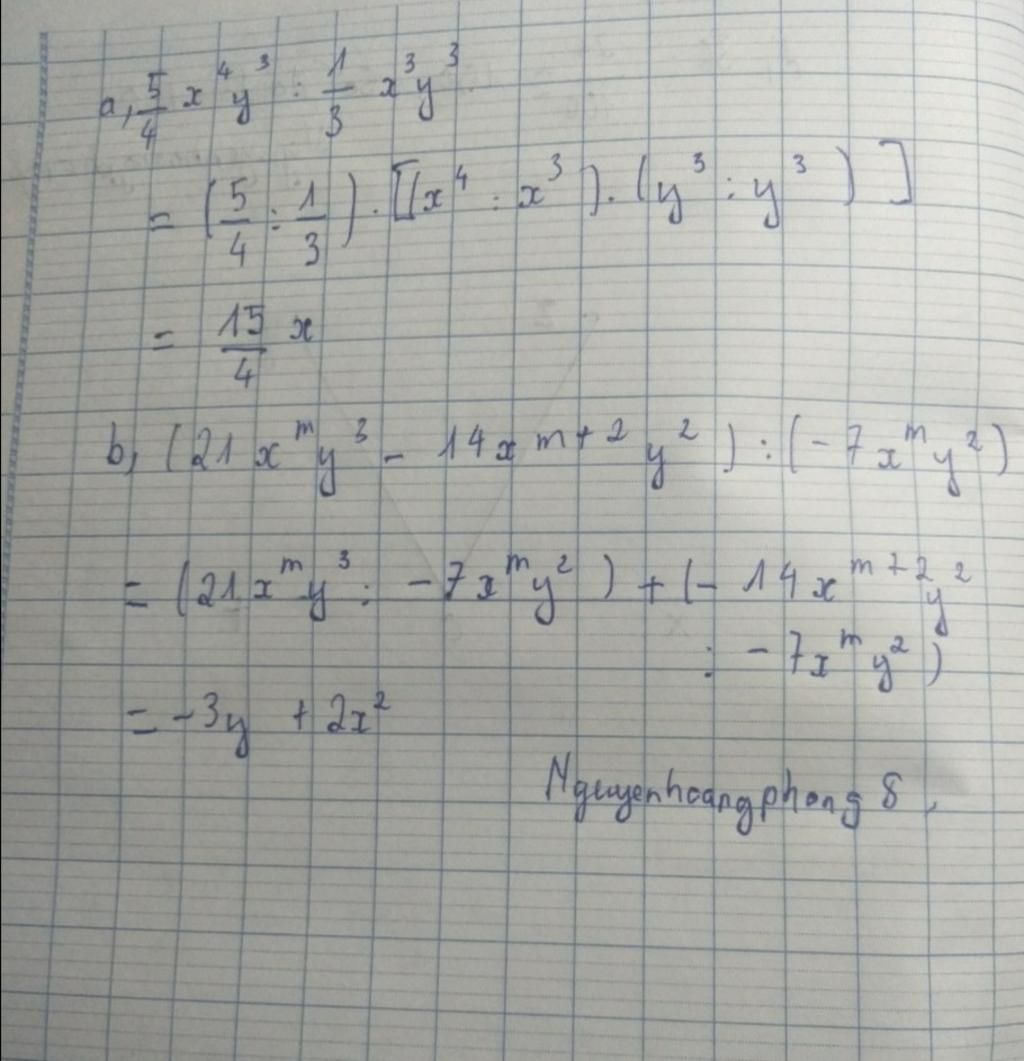 a, 5/4 x⁴y³ : 1/3 x³y³
= (5/4 : 1/3) . [(x⁴ : x³) . (y³ : y³)]
= 15/4 x
b, (21x^m y³ - 14x^(m+2) y²) : (-7x^m y²)
= (21x^m y³ : -7x^m y²) + (-14x^(m+2) y²
: -7x^m y²)
= -3y + 2x²
Nguyenhoangphong8,